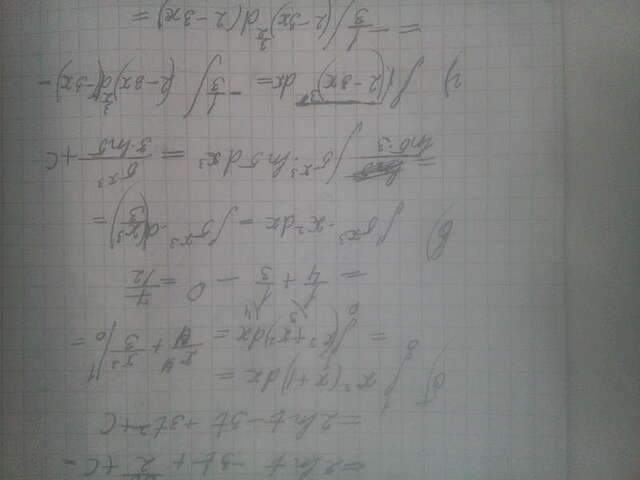 = 2ln t - 3t + + C =
= 2ln t - 3t + 3t² + C
б) ∫₀¹ x²(x+1)dx =
= ∫₀¹ (x³+x²)dx = x⁴/4 + x³/3 |₀¹ =
= 1/4 + 1/3 - 0 = 7/12
в) ∫5^(x³) · x²dx = ∫5^(x³) · d(x³/3) =
= 1/(ln5·3) ∫5^(x³) · ln5 dx³ = 5^(x³)/(3·ln5) + C
г) ∫√(2-3x)³ dx = -1/3 ∫(2-3x)^(3/2) d(2-3x) -
= -1/3 ∫(2-3x)^(3/2) d(2-3x) =